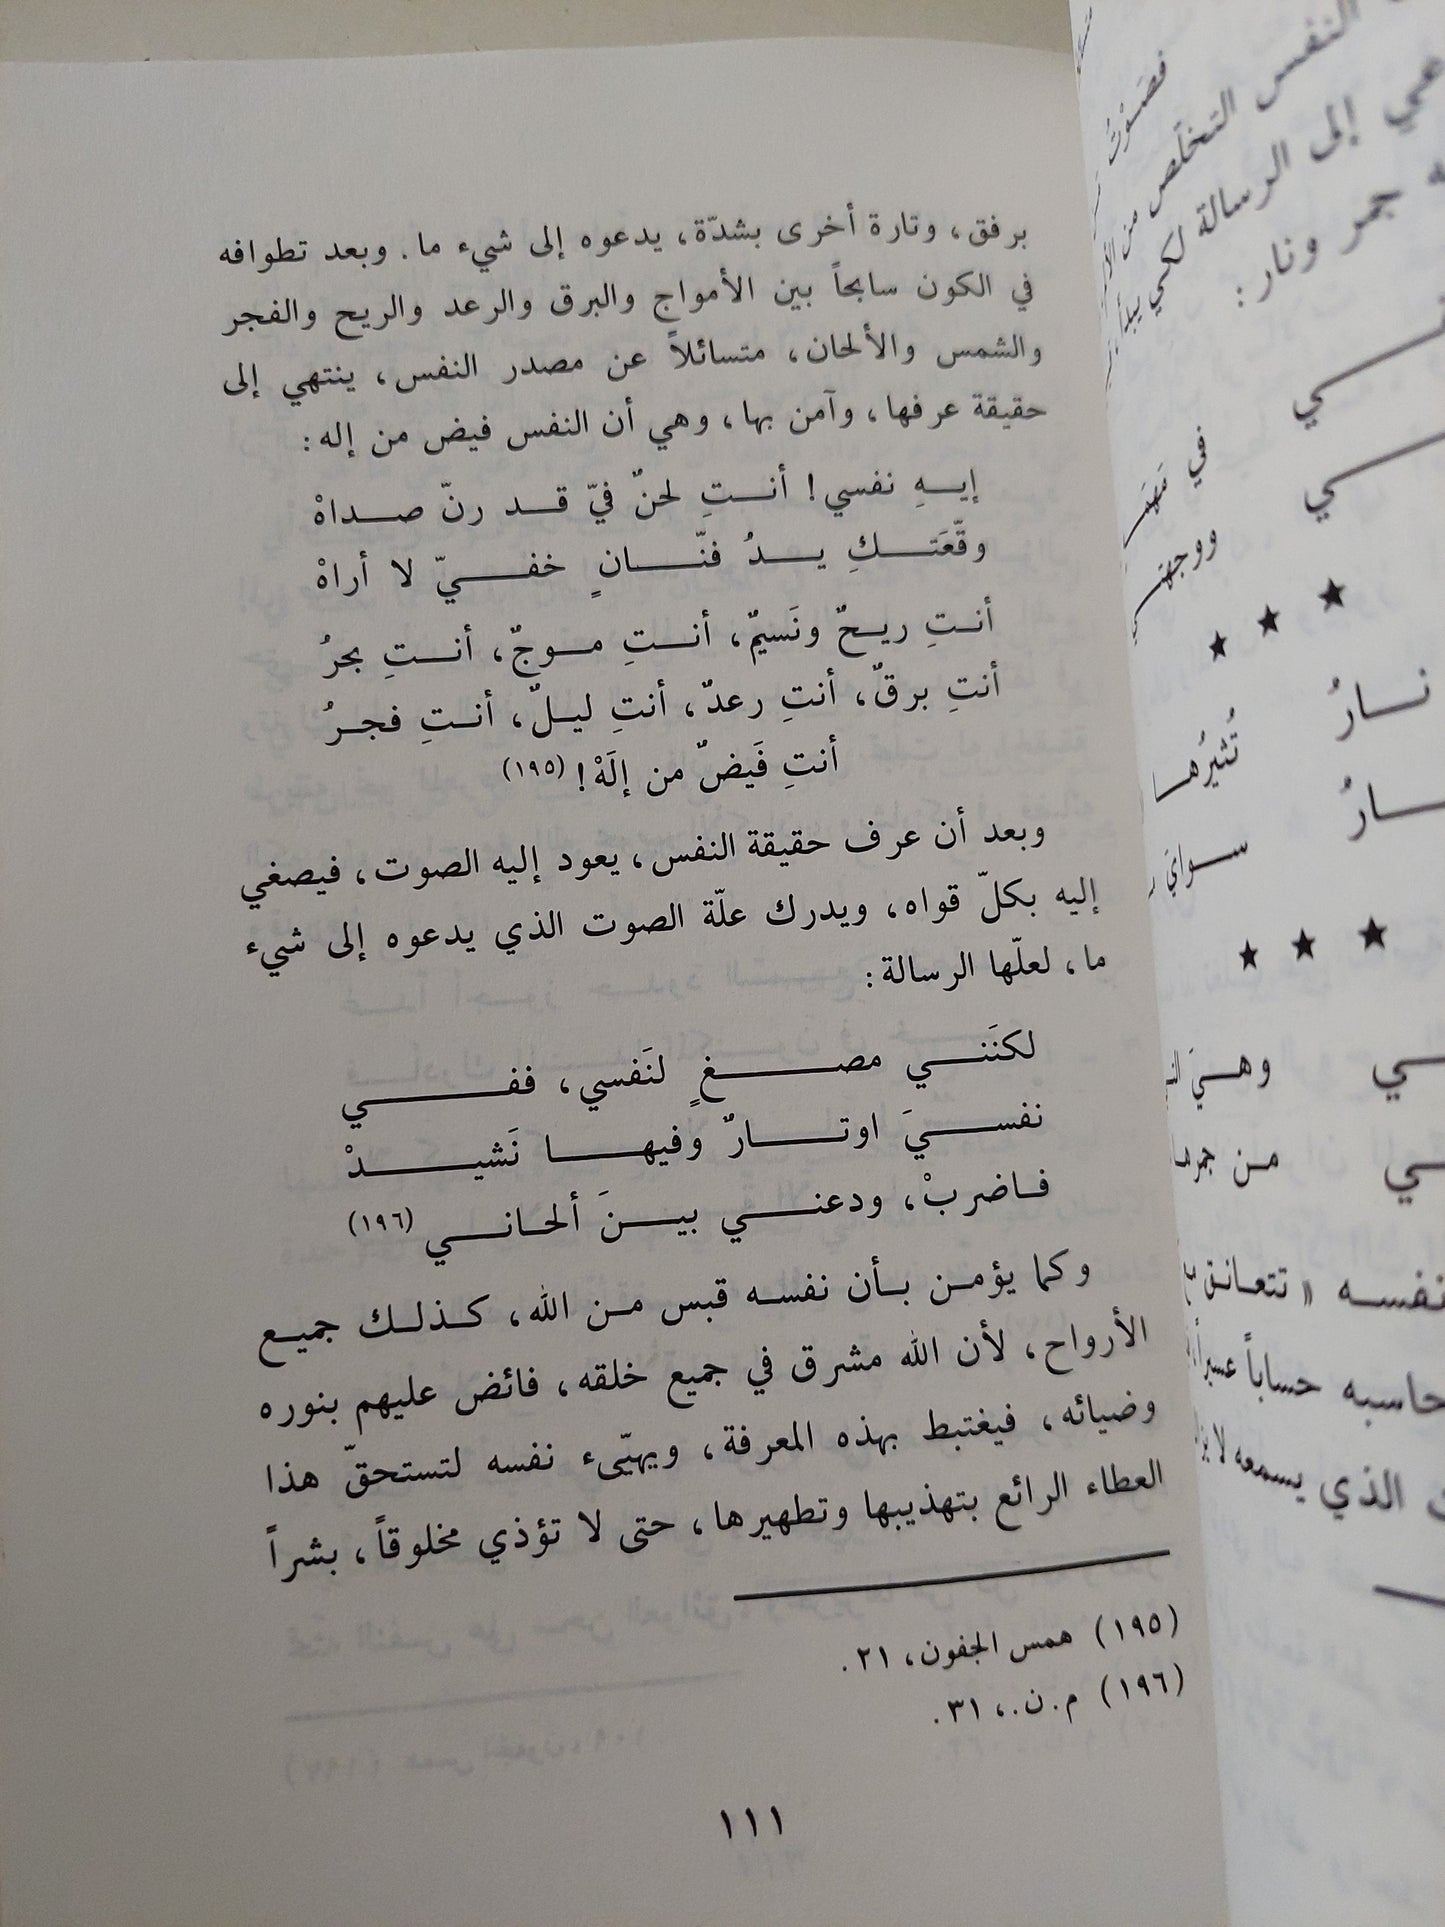 برفق، وتارة أخرى بشدّة، يدعوه إلى شيء ما. وبعد تطوافه
في الكون سابحاً بين الأمواج والبرق والرعد والريح والفجر
والشمس والألحان، متسائلاً عن مصدر النفس، ينتهي إلى
حقيقة عرفها، وآمن بها، وهي أن النفس فيض من إله:
إيــهِ نفسي! أنــتِ لحنٌ فيّ قــد رنّ صــداهْ
وقّعَتــكِ يــدُ فنّــانٍ خفــيّ لا أراهْ
أنــتِ ريــحٌ ونَسيمٌ، أنــتِ مــوجٌ، أنــتِ بحرُ
أنتِ برقٌ، أنتِ رعدٌ، أنتِ ليــلٌ، أنــتِ فجــرُ
أنتِ فَيضٌ من إلَهْ! (١٩٥)
وبعد أن عرف حقيقة النفس، يعود إليه الصوت، فيصغي
إليه بكلّ قواه، ويدرك علّة الصوت الذي يدعوه إلى شيء
ما، لعلّها الرسالة:
لكنَنــي مصــغٍ لنَفسي، ففــي
نفســيَ اوتــارٌ وفيهــا نَشيــدْ
فــاضربْ، ودعنــي بيــنَ ألحانــي (١٩٦)
وكما يؤمــن بــأن نفســه قبس مــن الله، كــذلــك جميــع
الأرواح، لأن الله مشرق في جميع خلقه، فائض عليهم بنوره
وضيائه، فيغتبط بهذه المعرفة، ويهيّىء نفسه لتستحقّ هذا
العطاء الرائع بتهذيبها وتطهيرها، حتى لا تؤذي مخلوقاً، بشراً
(١٩٥) همس الجفون، ٢١.
(١٩٦) م.ن.، ٣١.
١١١
النفس التخلّص من
إلى الرسالة لكي يبدأ
جمر ونار:
في
★ ★ ★
نــارُ
تُثيرُهــا
★ ★ ★
مــن جمرهــا
نفســه « تتعــانــق
حساباً عسيراً
الذي يسمعه